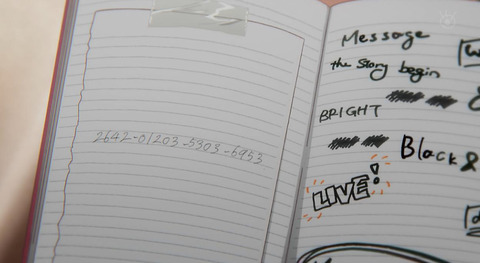 2642-01203-5303-6953
Message
the story begin
BRIGHT
Black &
LIVE!